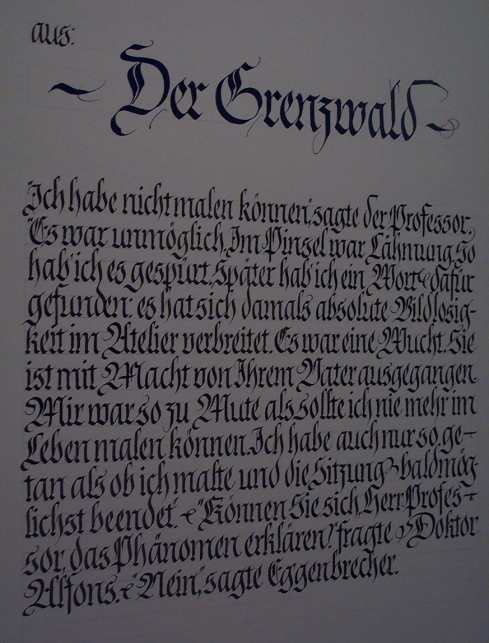 aus:
~ Der Grenzwald ~
"Ich habe nicht malen können", sagte der Professor,
"Es war unmöglich, Im Pinsel war Lähmung, so
hab' ich es gespürt, später hab' ich ein Wort dafür
gefunden: es hat sich damals absolute Bildlosig-
keit im Atelier verbreitet. Es war eine Wucht. Sie
ist mit Macht von Ihrem Vater ausgegangen
Mir war so zu Mute als sollte ich nie mehr im
Leben malen können. Ich habe auch nur so ge-
tan als ob ich malte und die Sitzung baldmög
lichst beendet". "Können Sie sich, Herr Profes-
sor, das Phänomen erklären?" fragte Doktor
Alfons. "Nein", sagte Eggenbrecher.